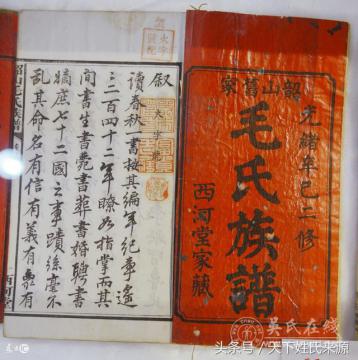 韶山舊家
光緒辛巳二修
毛氏族譜
西河堂家藏
叙
大字號
讀春秋一書按其編年紀章遙
二百四十二年瞭如指掌而其
間書生書薨書葬書婚聘書
牆廡七十二國之事蹟絲毫不
亂其命名有信有義有
韶山毛氏族譜
西河堂
吴氏在线
头条号/天下姓氏来源